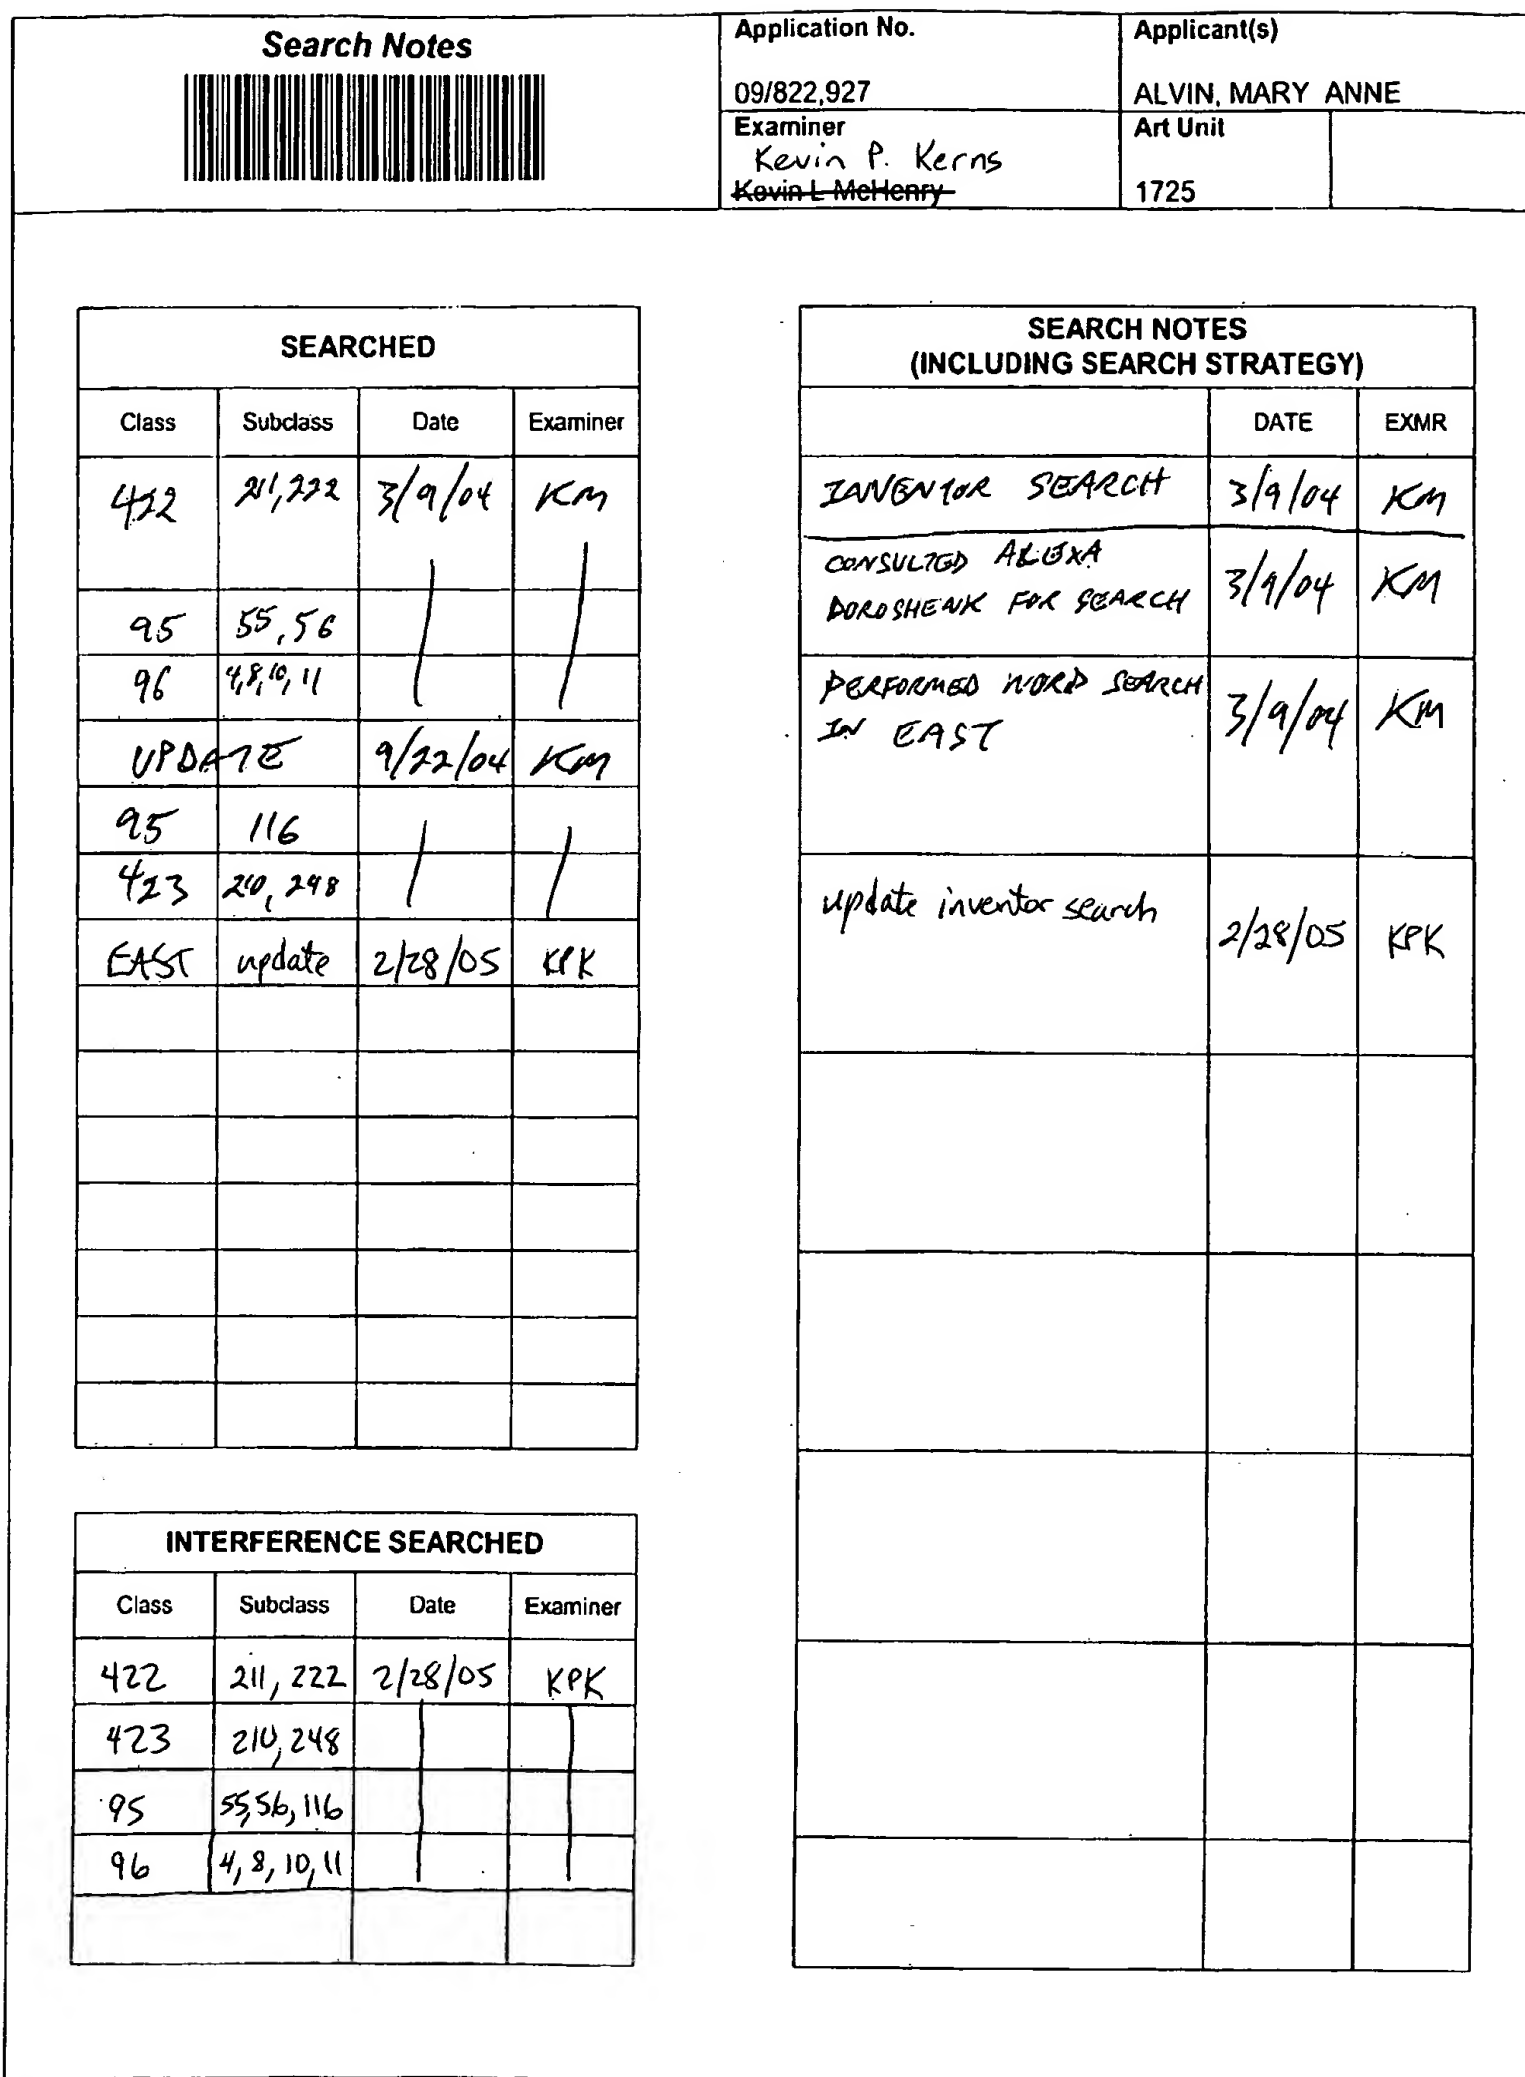 Search Notes
Application No.
09/822,927
Applicant(s)
ALVIN, MARY ANNE
Examiner
Kevin P. Kerns
Kevin L McHenry
Art Unit
1725
SEARCHED
Class Subclass Date Examiner
422 211,222 3/9/04 KM
95 55,56
96 4,8,10,11
UPDATE 9/22/04 KM
95 116
423 210, 248
EAST update 2/28/05 KPK
INTERFERENCE SEARCHED
Class Subclass Date Examiner
422 211, 222 2/28/05 KPK
423 210, 248
95 55,56, 116
96 4, 8, 10, 11
SEARCH NOTES
(INCLUDING SEARCH STRATEGY)
DATE EXMR
INVENTOR SEARCH 3/9/04 KM
CONSULTED ALEXA
DOROSHENK FOR SEARCH 3/9/04 KM
PERFORMED WORD SEARCH
IN EAST 3/9/04 KM
update inventor search 2/28/05 KPK